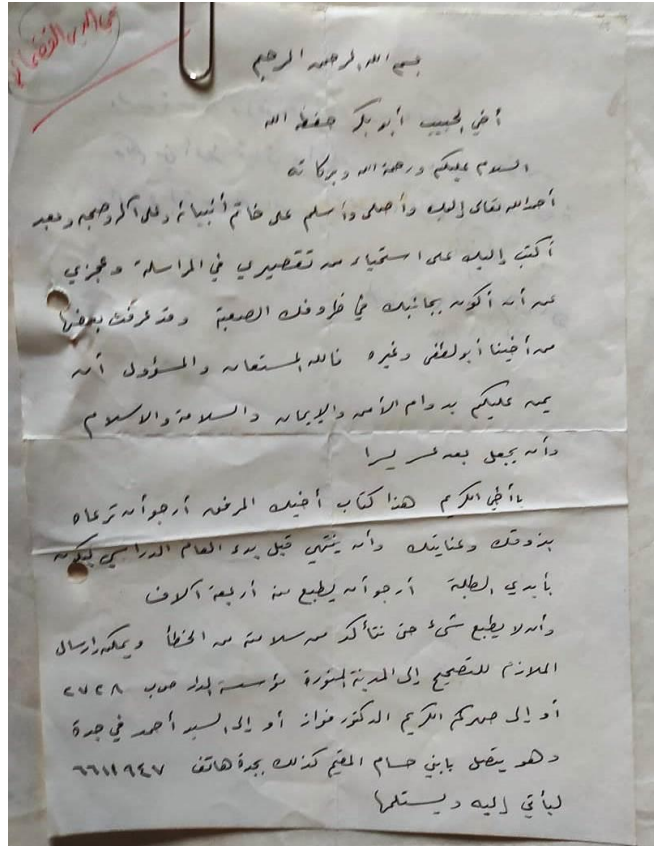 محي الدين القضماني
بسم الله الرحمن الرحيم
أخي الحبيب أبو بكر حفظه الله
السلام عليكم ورحمة الله وبركاته
أحمد الله تعالى إليك وأصلي وأسلم على خاتم أنبيائه وعلى آله وصحبه وبعد
أكتب إليك على استحياء من تقصيري في المراسلة وعجزي
عن أن أكون بجانبك في ظروفك الصعبة وقد عرفت بعضها
من أخينا أبو لطفي وغيره فالله المستعان والمسؤول أن
يمن عليكم بدوام الأمن والإيمان والسلامة والاسلام
وأن يجعل بعد عسر يسرا
يا أخي الكريم هذا كتاب أخيك المرفق أرجو أن ترعاه
بذوقك وعنايتك وأن ينتهي قبل بدء العام الدراسي ليكون
بأيدي الطلبة أرجو أن يطبع منه أربعة آلاف
وأن لا يطبع شيء حتى نتأكد من سلامته من الخطأ ويمكن إرسال
الملازم للتصحيح إلى المدينة المنورة مؤسسة المدار ص ب ٢٧٢٨
أو إلى صهركم الكريم الدكتور فواز أو إلى السيد أحمد في جدة
وهو يتصل بابني حسام المقيم كذلك بجدة هاتف ٦٦١١٩٤٧
ليأتي إليه ويستلمها